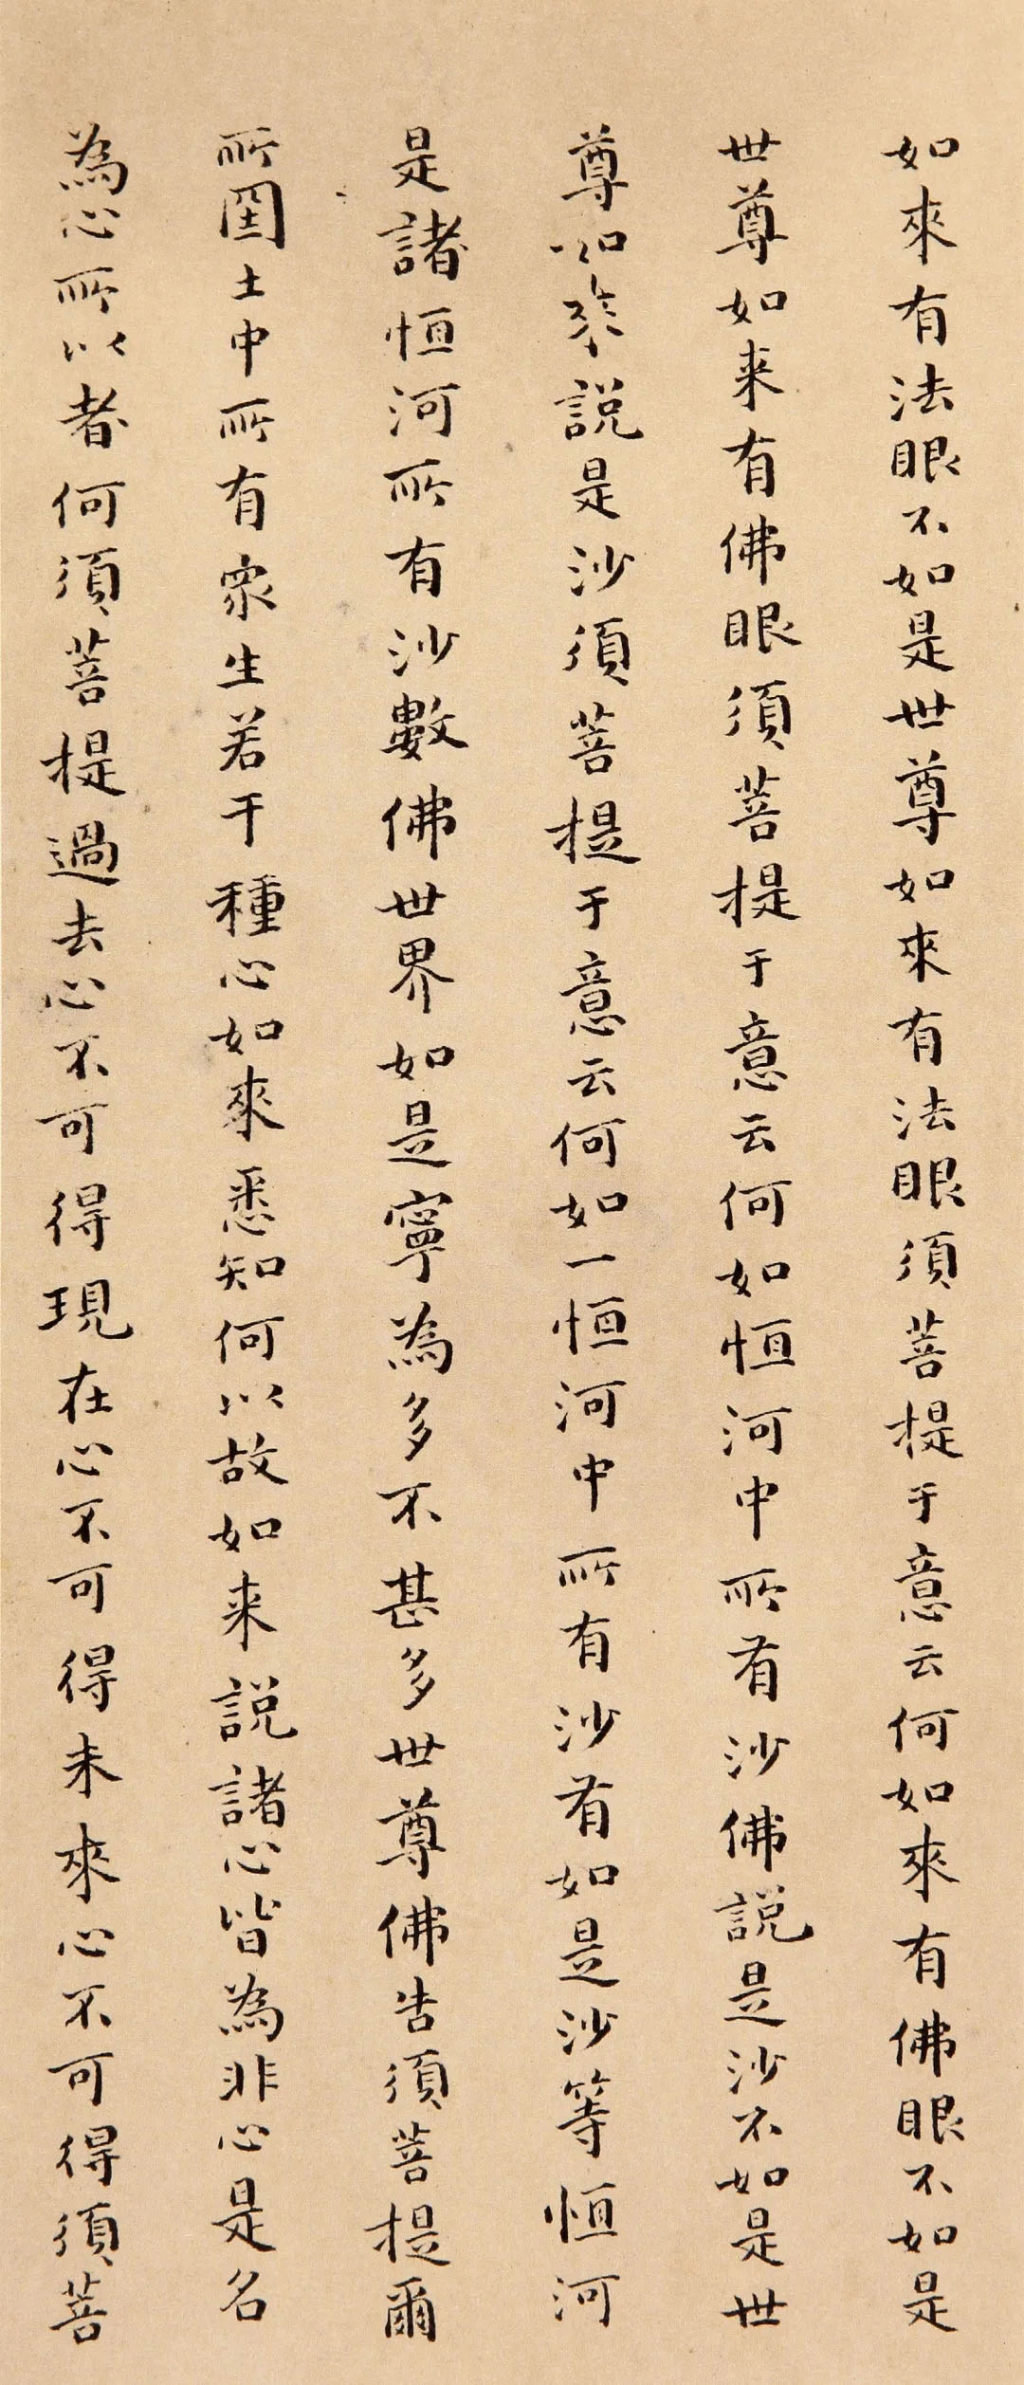 如來有法眼不如是世尊如來有法眼須菩提于意云何如來有佛眼不如是
世尊如来有佛眼須菩提于意云何如恒河中所有沙佛説是沙不如是世
尊如來説是沙須菩提于意云何如一恒河中所有沙有如是沙等恒河
是諸恒河所有沙數佛世界如是寧為多不甚多世尊佛告須菩提爾
所国土中所有衆生若干種心如來悉知何以故如来説諸心皆為非心是名
為心所以者何須菩提過去心不可得現在心不可得未來心不可得須菩